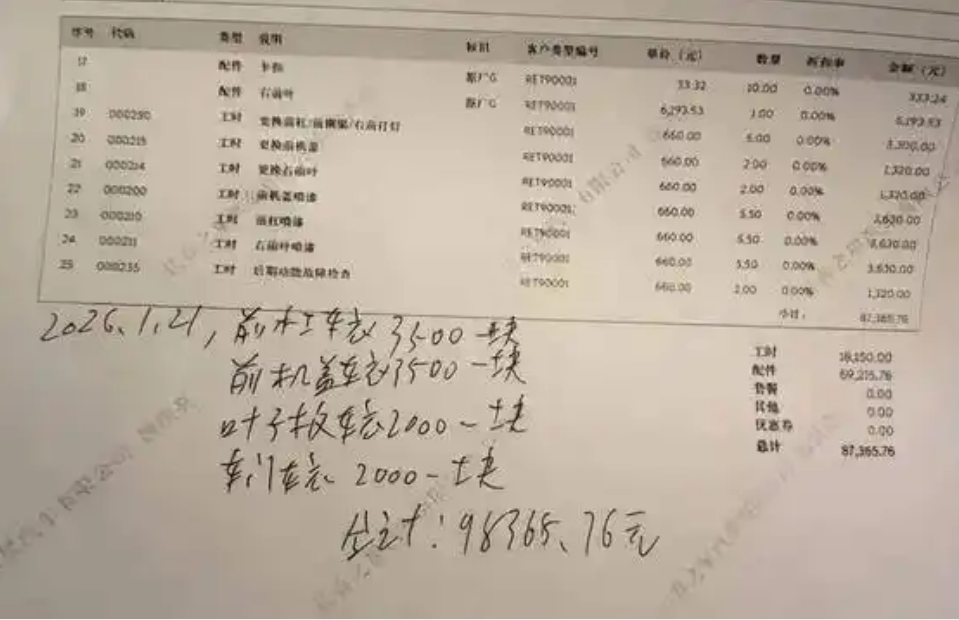 序号 代码 类型 说明 标识 客户类型编号 单价（元） 数量 折扣率 金额（元）
17 配件 卡扣 原厂G RET90001 53.32 10.00 0.00% 533.24
18 配件 右前叶 原厂G RET90001 6,193.53 1.00 0.00% 6,193.53
19 000290 工时 更换前杠/前侧梁/右前灯灯 RET90001 660.00 5.00 0.00% 3,300.00
20 000215 工时 更换前机盖 RET90001 660.00 2.00 0.00% 1,320.00
21 000214 工时 更换右前叶 RET90001 660.00 2.00 0.00% 1,320.00
22 000200 工时 前机盖喷漆 RET90001 660.00 5.50 0.00% 3,630.00
23 000210 工时 前杠喷漆 RET90001 660.00 5.50 0.00% 3,630.00
24 000211 工时 右前叶喷漆 RET90001 660.00 5.50 0.00% 3,630.00
25 000235 工时 后期功能故障检查 RET90001 660.00 2.00 0.00% 1,320.00
小计： 87,365.76
工时 18,150.00
配件 69,215.76
套餐 0.00
其他 0.00
优惠券 0.00
总计 87,365.76
2026、1.21，前杠车衣3500一块
前机盖车衣3500一块
叶子板车衣2000一块
车门车衣 2000一块
合计：98365、76元